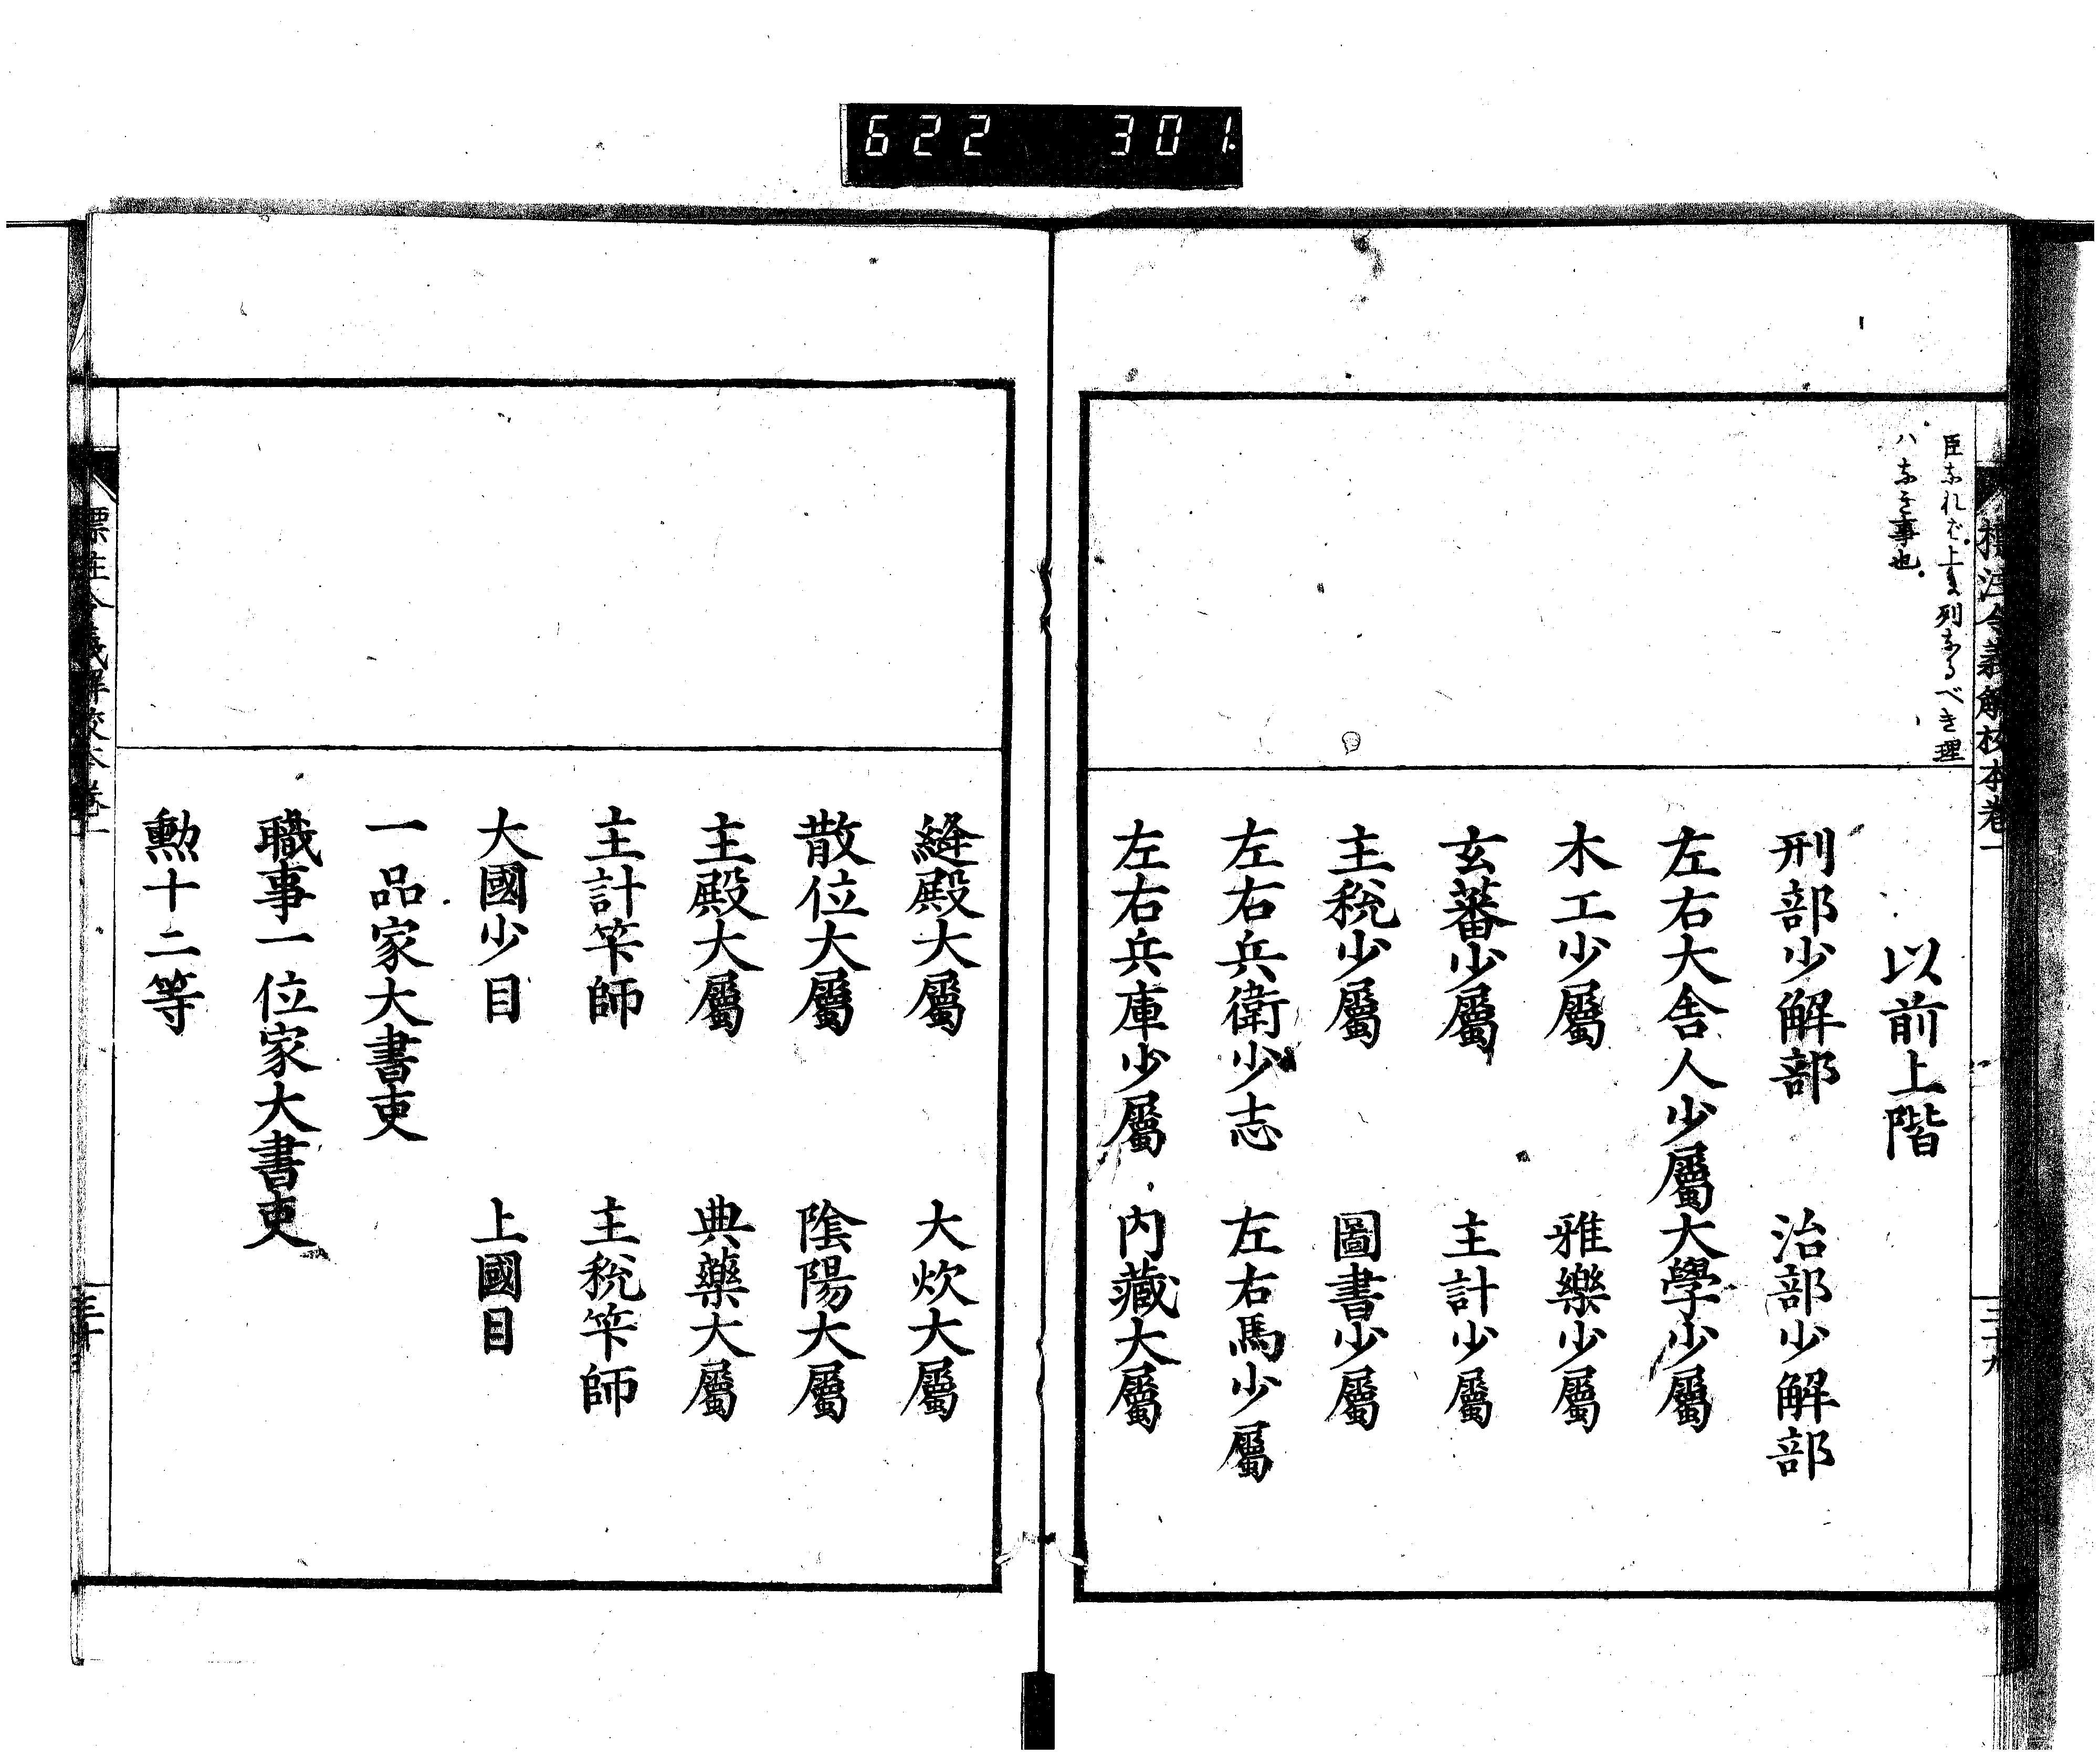 622 301
標注令義解校本卷一
臣なれば上に列なるべき理
ハなき事也
以前上階
刑部少解部 治部少解部
左右大舍人少屬 大學少屬
木工少屬 雅樂少屬
玄蕃少屬 主計少屬
主稅少屬 圖書少屬
左右兵衛少志 左右馬少屬
左右兵庫少屬 內藏大屬
縫殿大屬 大炊大屬
散位大屬 陰陽大屬
主殿大屬 典藥大屬
主計笇師 主稅笇師
大國少目 上國目
一品家大書吏
職事一位家大書吏
勲十二等
標注令義解校本卷一